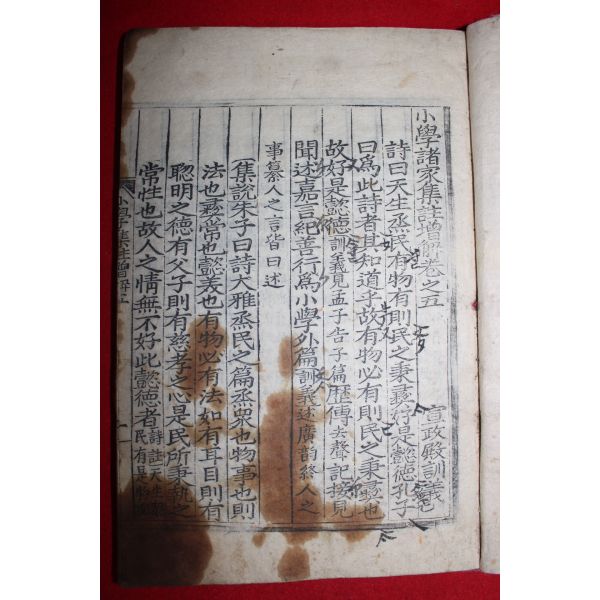 小學諸家集註增解卷之五
宣政殿訓義
詩曰天生烝民有物有則民之秉彝好是懿德孔子
曰爲此詩者其知道乎故有物必有則民之秉彝也
故好是懿德訓義見孟子告子篇歷傳去聲記接見
聞述嘉言紀善行爲小學外篇訓義述廣韵纂人之
事纂人之言皆曰述
集說朱子曰詩大雅烝民之篇烝衆也物事也則
法也彝常也懿美也有物必有法如有耳目則有
聰明之德有父子則有慈孝之心是民所秉執之
常性也故人之情無不好此懿德者詩註天生
民有是物
小學集註增解五